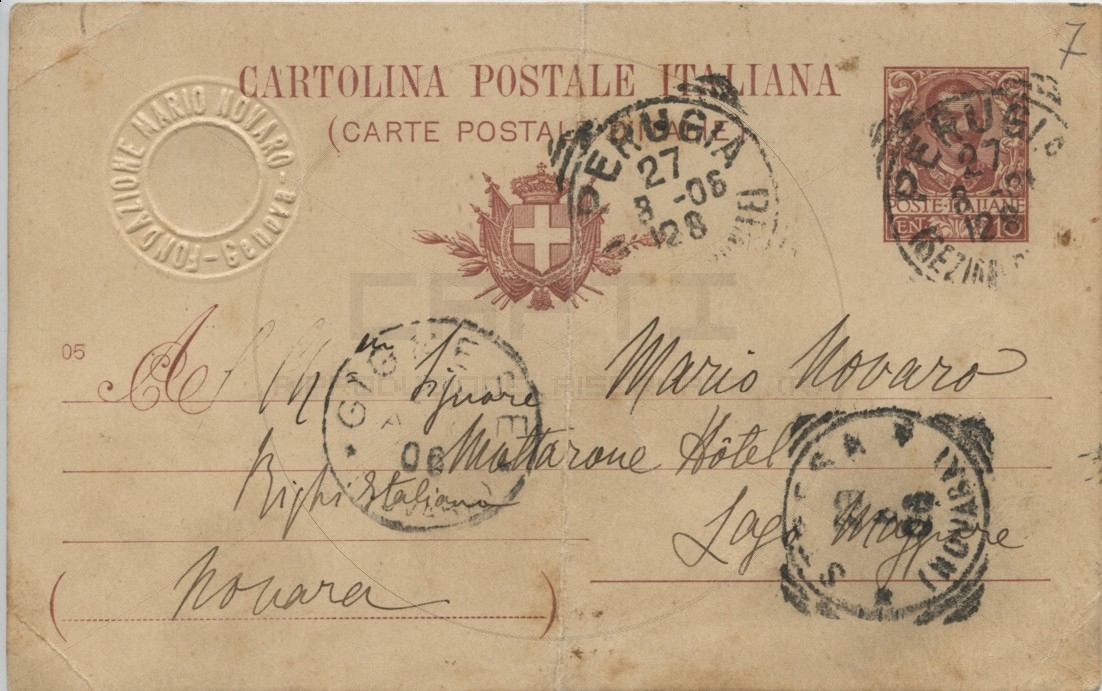 7
CARTOLINA POSTALE ITALIANA
(CARTE POSTALE D'ITALIE)
FONDAZIONE MARIO NOVARO - Genova
PERUGIA
27
8 -06
12S
PERUGIA
27
8
12S
POSTE·ITALIANE
05
Al Ill.m Signore Mario Novaro
Mottarone Hôtel
Righi Italiano
Lago Maggiore
Novara
GIGNESE
06
STRESA
(NOVARA)